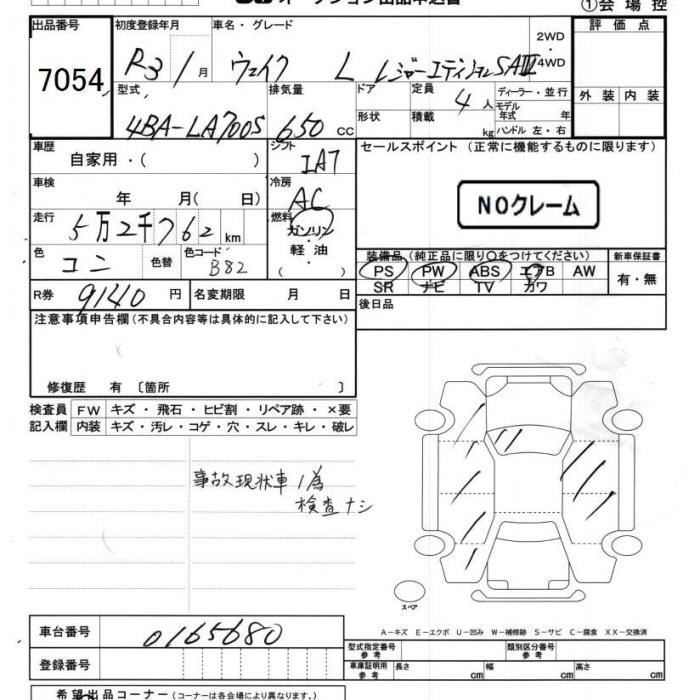 オークション出品申込書
①会場控
出品番号 初度登録年月 車名・グレード 2WD・4WD 評価点
7054 R3 / 1月 ウェイク L レジャーエディションSAⅢ
型式 排気量 ドア 定員 4人 ディーラー・並行 外装 内装
4BA-LA700S 650cc 形状 積載 kg モデル年式 年
ハンドル 左・右
車歴 自家用・( ) シフト IAT セールスポイント (正常に機能するものに限ります)
車検 年 月( 日) 冷房 AC NOクレーム
走行 5万2千762km 燃料 ガソリン・軽油( )
色 コン 色替 色コード B82 装備品 (純正品に限り○をつけてください) 新車保証書
PS PW ABS エアB AW 有・無
SR ナビ TV カワ
R券 9140円 名変期限 月 日 後日品
注意事項申告欄(不具合内容等は具体的に記入して下さい)
修復歴 有 〔箇所 〕
検査員 FW キズ・飛石・ヒビ割・リペア跡・×要
記入欄 内装 キズ・汚レ・コゲ・穴・スレ・キレ・破レ
事故現状車ノ為
検査ナシ
スペア
A−キズ E−エクボ U−凹み W−補修跡 S−サビ C−腐食 XX−交換済
車台番号 0165680
型式指定番号 参考 類別区分番号 参考
登録番号 車庫証明用 参考 長さ cm 幅 cm 高さ cm
希望出品コーナー(コーナーは各会場により異なります。)